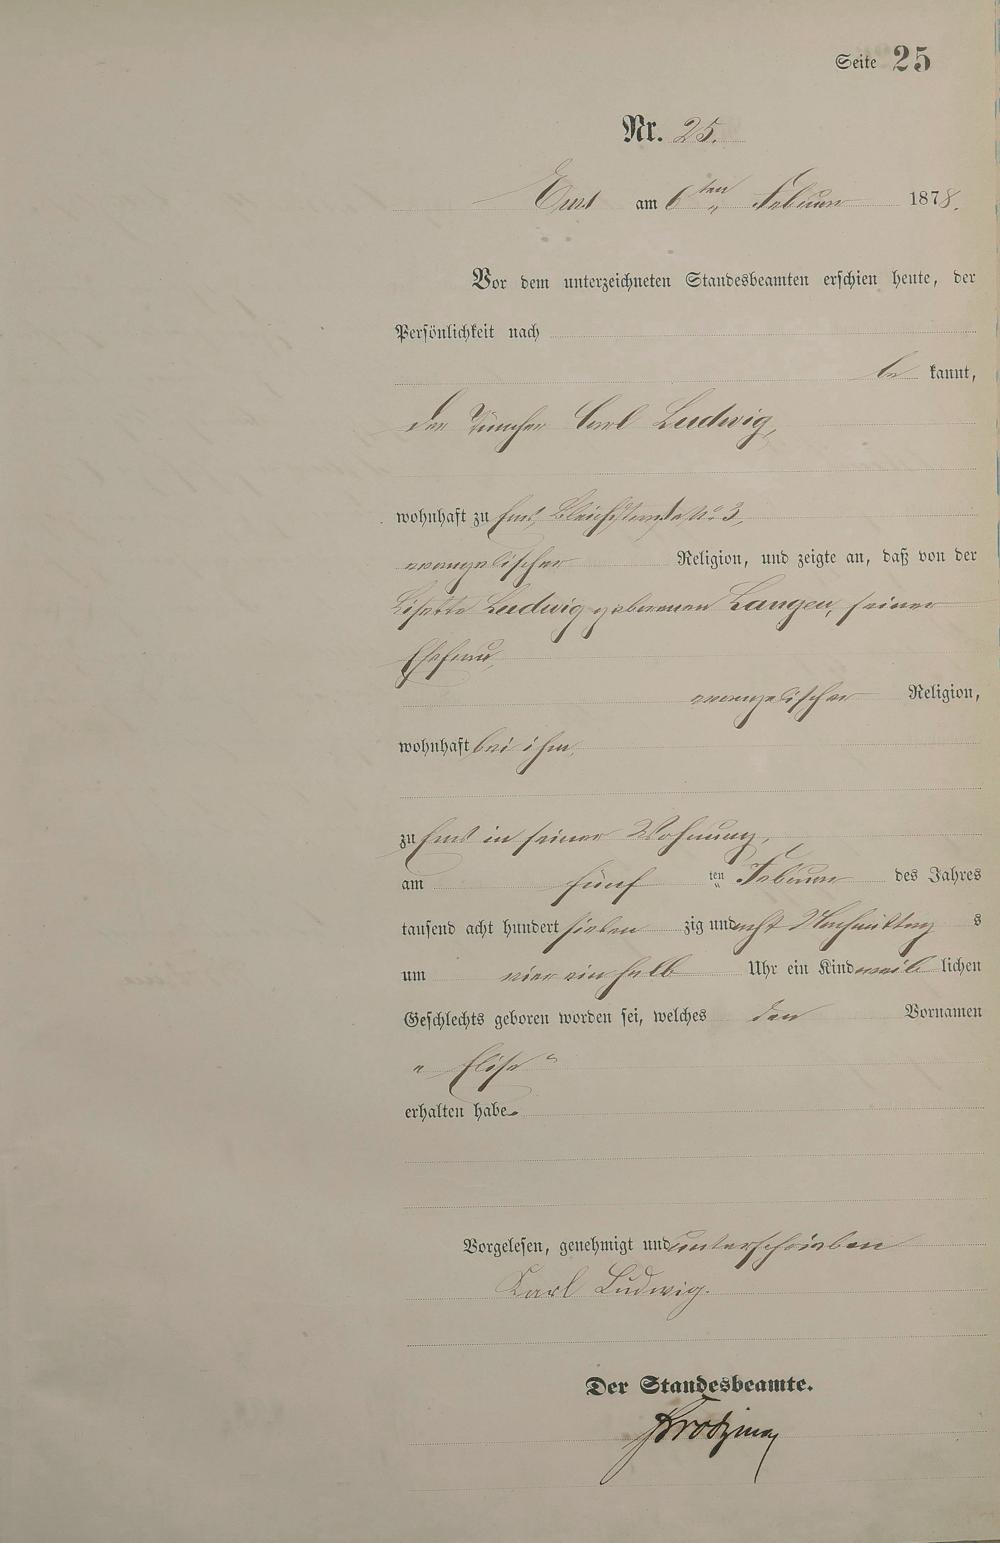 Seite 25
Nr. 25.
Ems am 6ten Februar 1878.
Vor dem unterzeichneten Standesbeamten erschien heute, der
Persönlichkeit nach
be kannt,
der Tüncher Carl Ludwig,
wohnhaft zu Ems, Bleichstraße No 3,
evangelischer Religion, und zeigte an, daß von der
Lisette Ludwig geborenen Langen, seiner
Ehefrau,
evangelischer Religion,
wohnhaft bei ihm,
zu Ems in seiner Wohnung,
am fünf ten Februar des Jahres
tausend acht hundert sieben zig und acht Nachmittag s
um vier ein halb Uhr ein Kind weib lichen
Geschlechts geboren worden sei, welches den Vornamen
„Elise“
erhalten habe.
Vorgelesen, genehmigt und unterschrieben
Karl Ludwig.
Der Standesbeamte.